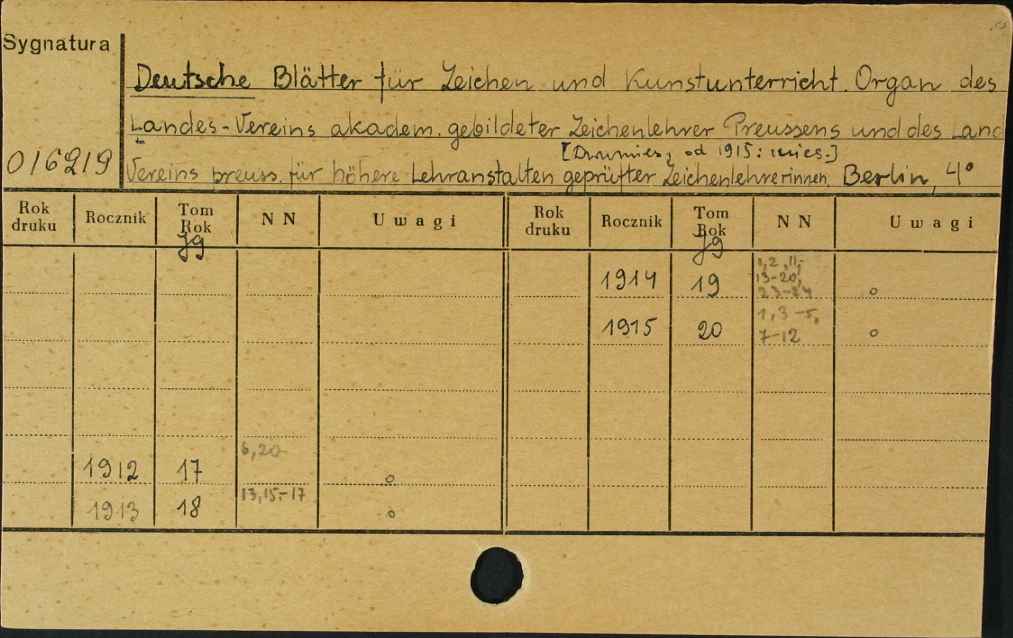 Sygnatura
Deutsche Blätter für Zeichen und Kunstunterricht. Organ des
Landes-Vereins akadem. gebildeter Zeichenlehrer Preussens und des Land
[Dwumies., od 1915: mies.]
016219 Vereins preuss. für höhere Lehranstalten geprüfter Zeichenlehrerinnen. Berlin, 4°
Rok druku Rocznik Tom Rok Jg NN Uwagi Rok druku Rocznik Tom Rok Jg NN Uwagi
1914 19 1, 2, 11, 13-20, 23-24 o
1915 20 1, 3-5, 7-12 o
1912 17 6, 20 o
1913 18 13, 15-17 o